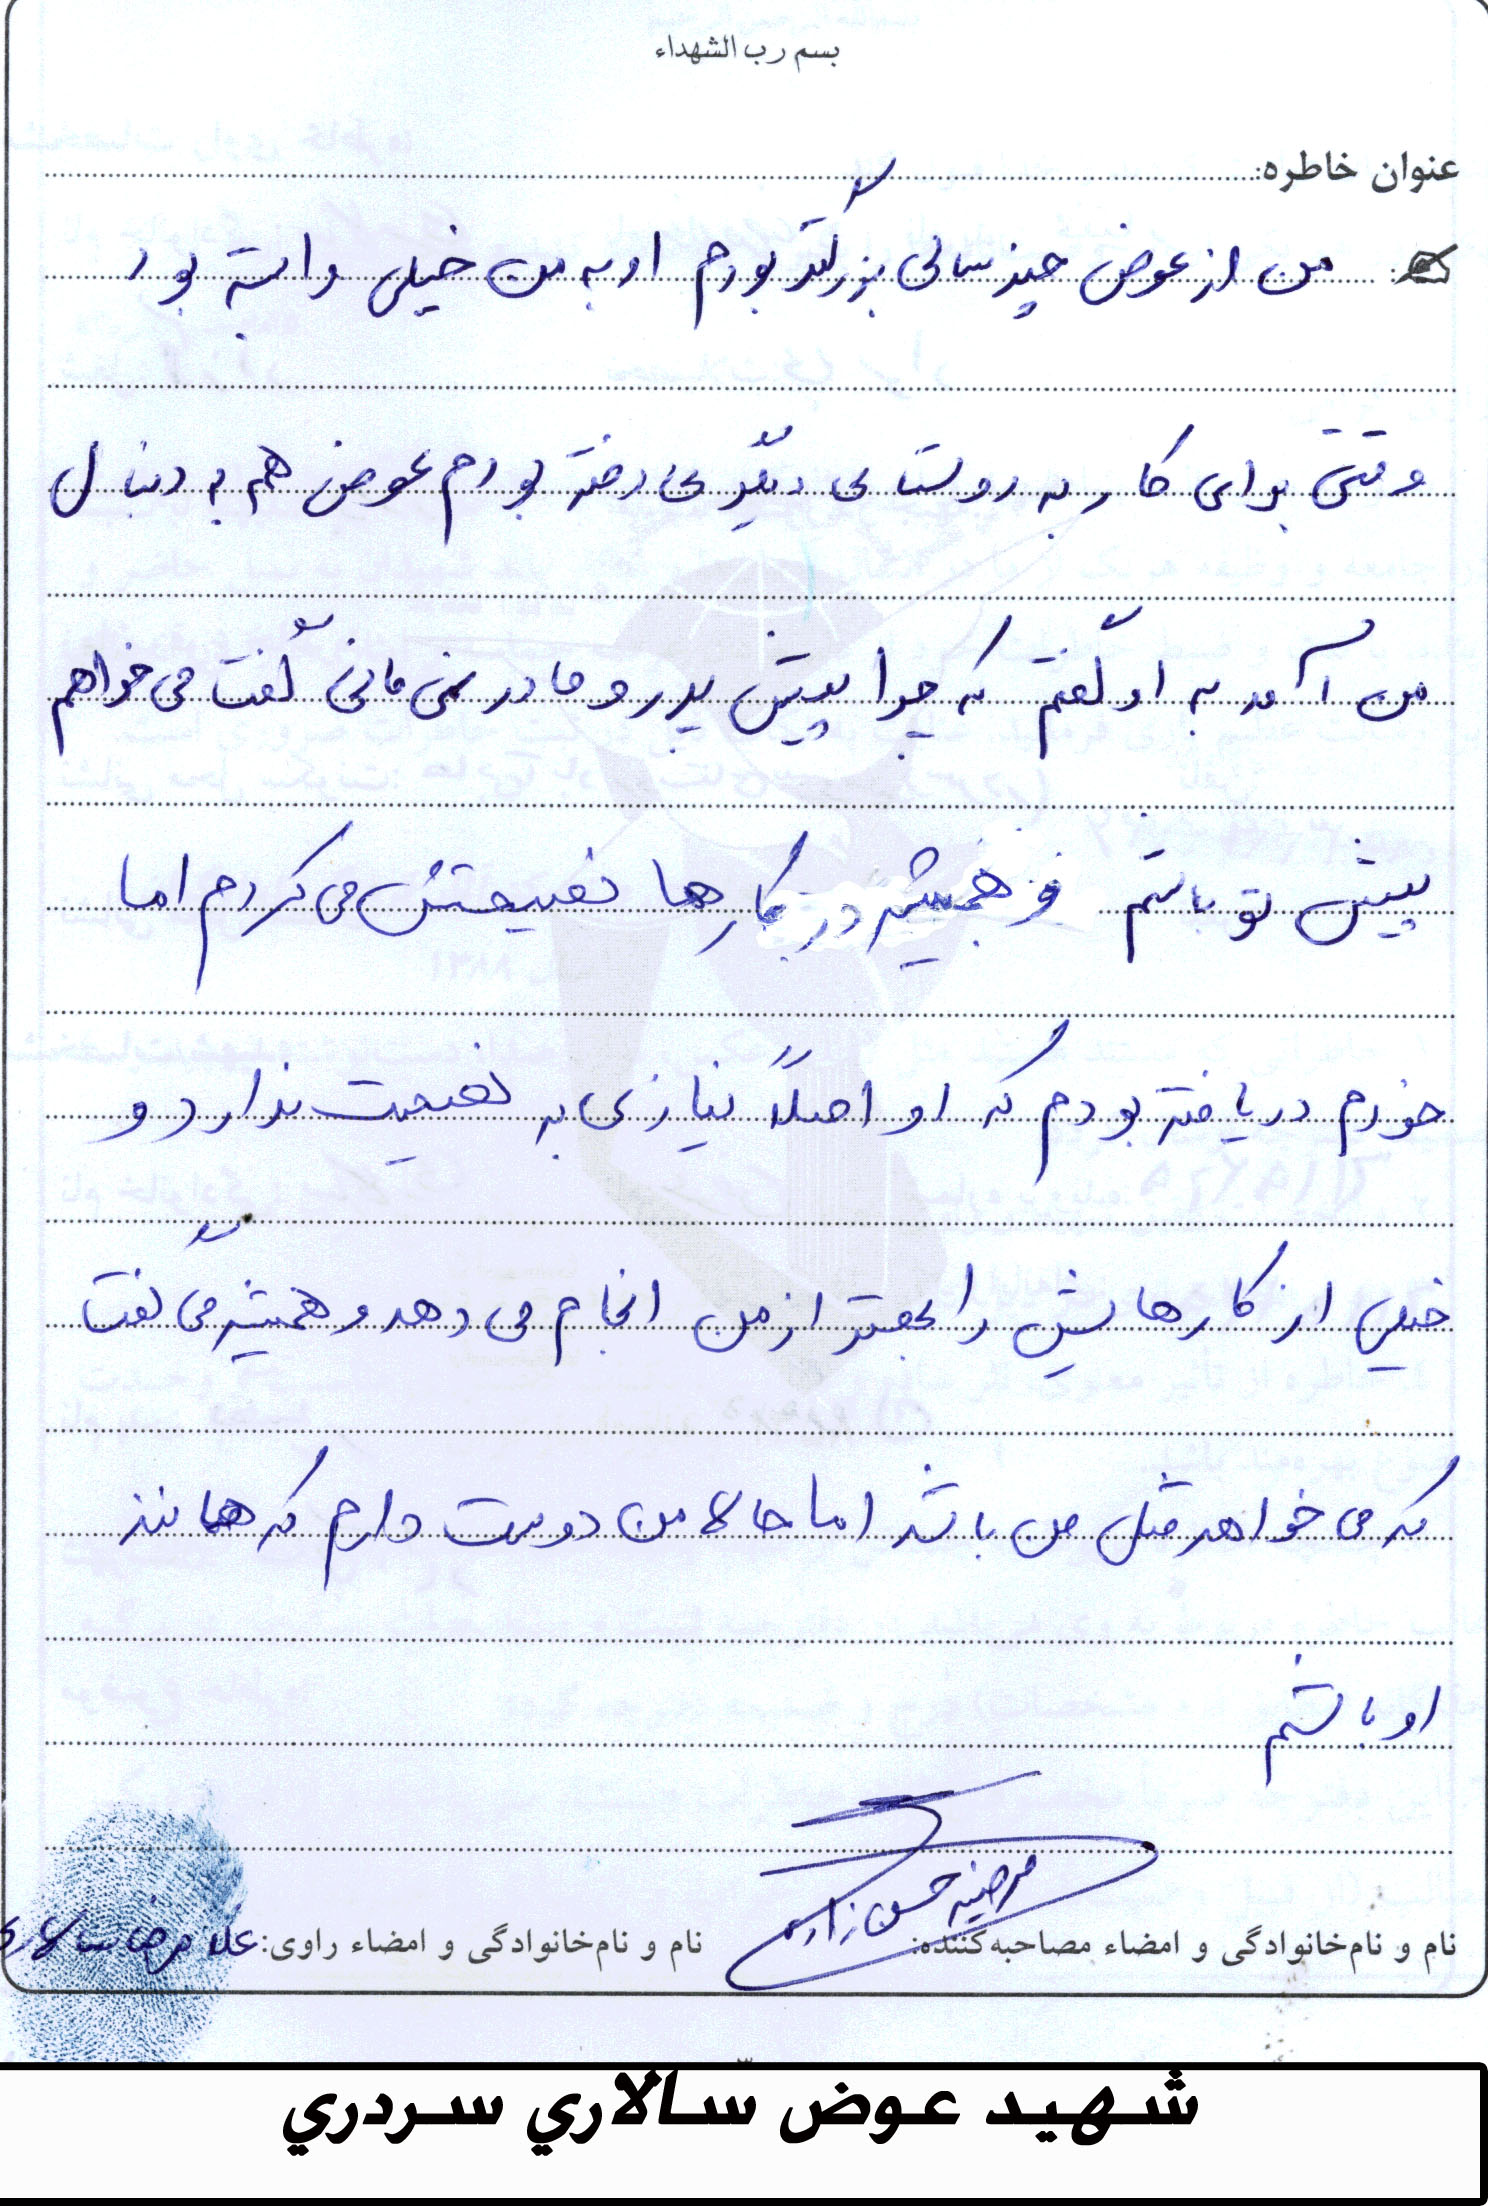 بسم رب الشهداء
عنوان خاطره:
من از عوض چند سالی بزرگتر بودم او به من خیلی وابسته بود
وقتی برای کار به روستای دیگری رفته بودم عوض هم به دنبال
من آمد به او گفتم که چرا پیش پدر و مادر نمی مانی گفت می خواهم
پیش تو باشم و همیشه در کارها نصیحتش می کردم اما
خودم دریافته بودم که او اصلاً نیازی به نصیحت ندارد و
خیلی از کارهایش را بهتر از من انجام می دهد و همیشه می گفت
که می خواهد مثل من باشد اما حالا من دوست دارم که همانند
او باشم
نام و نام‌خانوادگی و امضاء مصاحبه‌کننده: مرضیه حسن زاده
نام و نام‌خانوادگی و امضاء راوی: غلامرضا سالاری
۳
شهيد عوض سالاري سردري